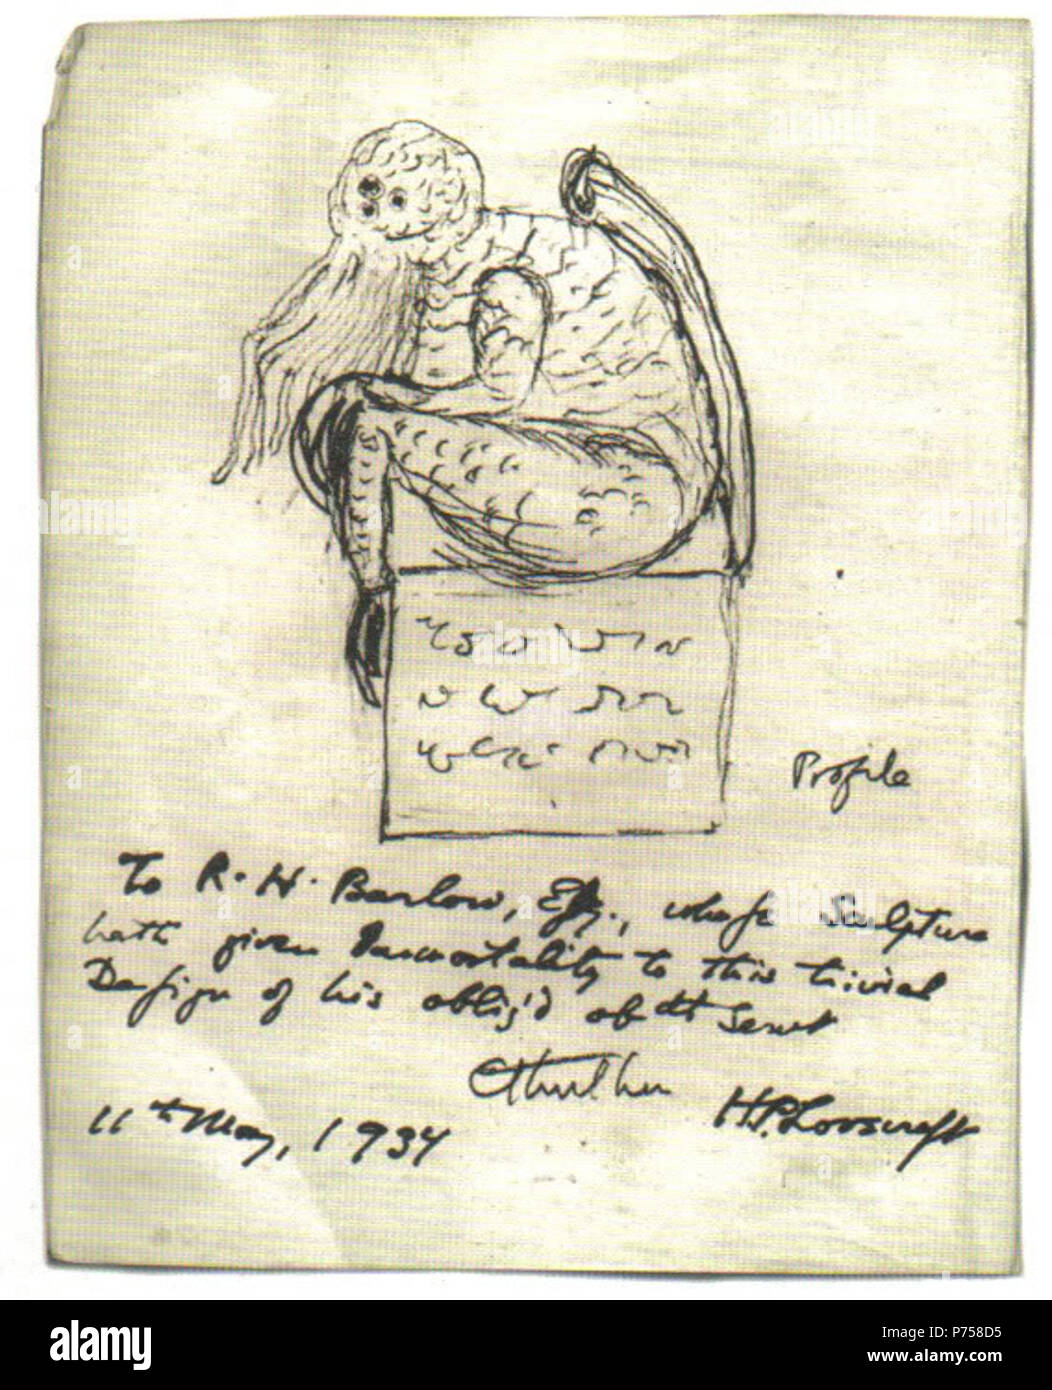 Profile
To R. H. Barlow, Esq., whose Sculpture
hath given Immortality to this trivial
Design of his oblig'd obdt Servt
Cthulhu
H.P. Lovecraft
11th May, 1934
alamy
P758D5
www.alamy.com